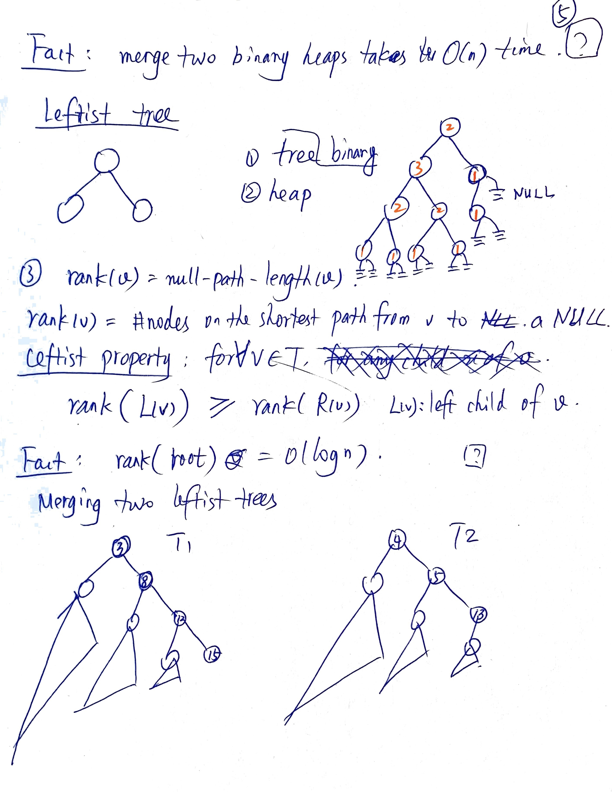 ⑤
Fact : merge two binary heaps takes O(n) time. ?
Leftist tree
① tree binary
② heap
2
3
1
NULL
2
2
1
1
1
1
1
③ rank(v) = null-path-length(v).
rank(v) = #nodes on the shortest path from v to a NULL.
Leftist property : for ∀ v ∈ T,
rank ( L(v) ) ⩾ rank( R(v) ) L(v): left child of v.
Fact : rank( root ) = O(log n). ?
Merging two leftist trees
3 T1
4 T2
8
5
12
13
15